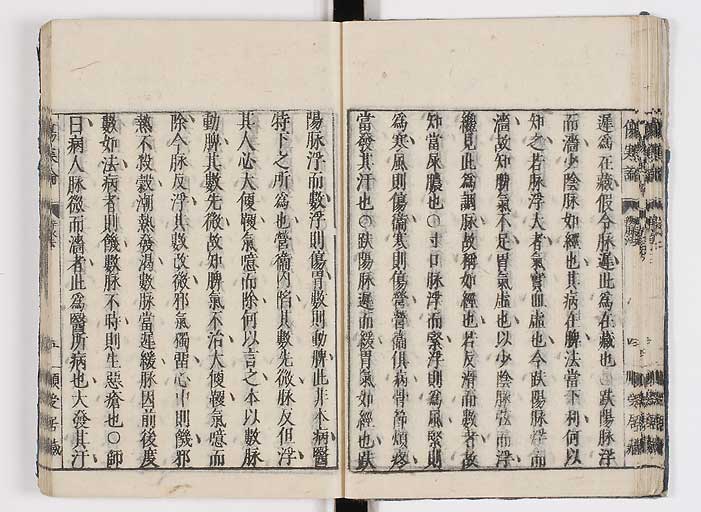 遲爲在藏假令脉遲此爲在藏也○趺陽脉浮
而濇少陰脉如經也其病在脾法當下利何以
知之若脉浮大者氣實血虛也今趺陽脉浮而
濇故知脾氣不足胃氣虛也以少陰脉弦而浮
纔見此爲調脉故稱如經也若反滑而數者故
知當屎膿也○寸口脉浮而緊浮則爲風緊則
爲寒風則傷衞寒則傷營營衞俱病骨節煩疼
當發其汗也○趺陽脉遲而緩胃氣如經也趺
陽脉浮而數浮則傷胃數則動脾此非本病醫
特下之所爲也營衞內陷其數先微脉反但浮
其人必大便鞕氣噫而除何以言之本以數脉
動脾其數先微故知脾氣不治大便鞕氣噫而
除今脉反浮其數改微邪氣獨留心中則饑邪
熱不殺穀潮熱發渴數脉當遲緩脉因前後度
數如法病者則饑數脉不時則生惡瘡也○師
曰病人脉微而濇者此爲醫所病也大發其汗
傷寒論
五